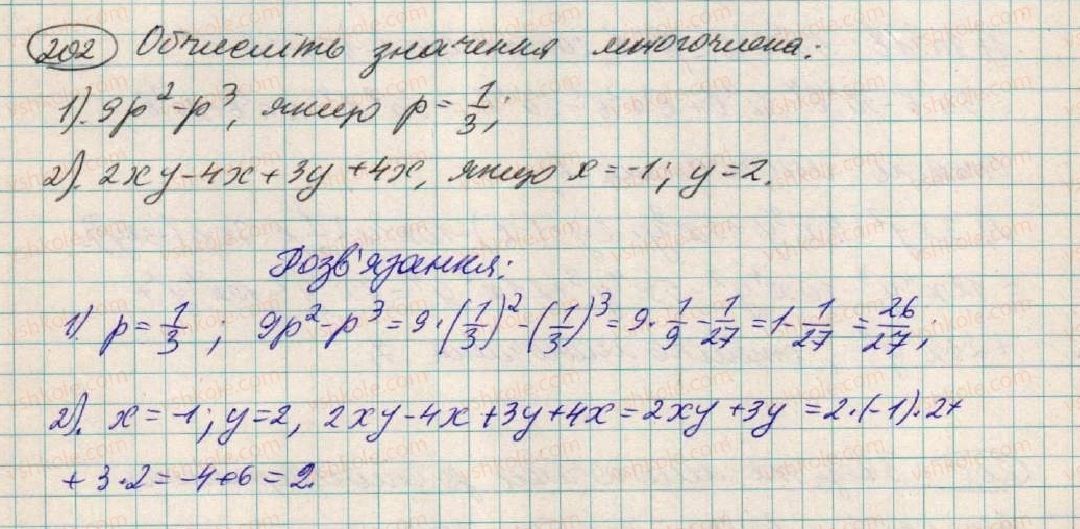 202 Обчисліть значення многочлена:
1). 9p² - p³, якщо p = 1/3;
2). 2xy - 4x + 3y + 4x, якщо x = -1; y = 2.
Розв'язання:
1) p = 1/3 ; 9p² - p³ = 9·(1/3)² - (1/3)³ = 9·1/9 - 1/27 = 1 - 1/27 = 26/27;
2). x = -1; y = 2, 2xy - 4x + 3y + 4x = 2xy + 3y = 2·(-1)·2 +
+ 3·2 = -4 + 6 = 2.